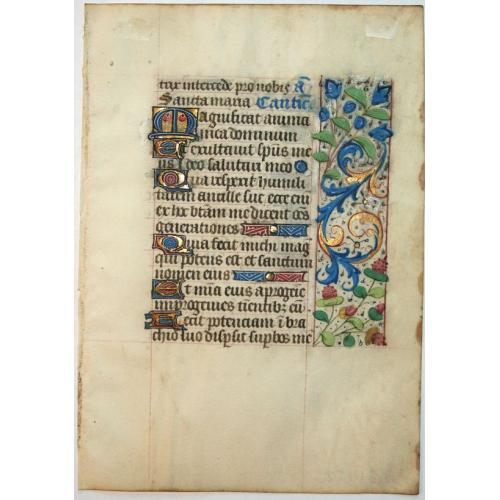 trix intercede pro nobis Añ
Sancta maria Cantic̄
Magnificat anima
mea dominum
Et exultauit sp̄us me
us i deo salutari meo
Quia respexit humili
tatem ancille sue ecce eni
ex hc btām me dicent oēs
generationes
Quia fecit michi mag
qui potens est et sanctum
nomen eius
Et mīa eius a progeīe
in progenies timentibz eū
Fecit potenciam ī bra
chio suo dispsit supbos me